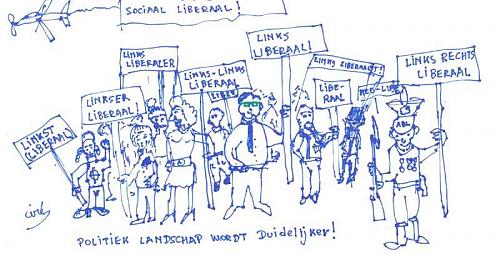 SOCIAAL LIBERAAL!
LINKS
LIBERALER
LINKS
LIBERAAL!
LINKS RECHTS
LIBERAAL
LINKS-LINKS
LIBERAAL
LINKS LIBERAALST!
LIBER
LIBE-
RAAL
NEO-LIBE
LINKSER
LIBERAAL!
LINKST
(LIBERAAL)
ABL
POLITIEK LANDSCHAP WORDT DuideLijkeR!